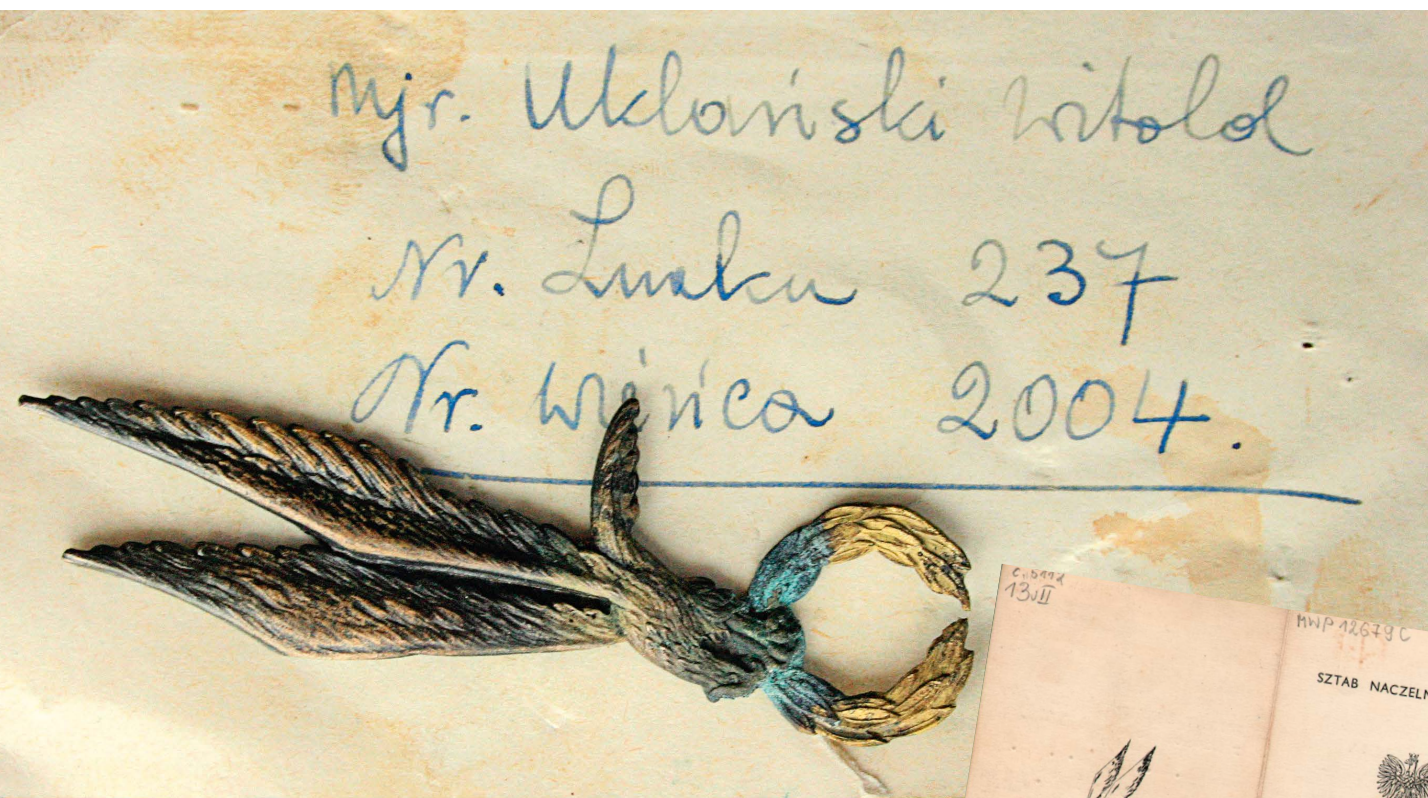 Mjr. Uklański Witold
Nr. Znaku 237
Nr. Wieńca 2004.
13 VII
MWP 12679 C
SZTAB NACZELN